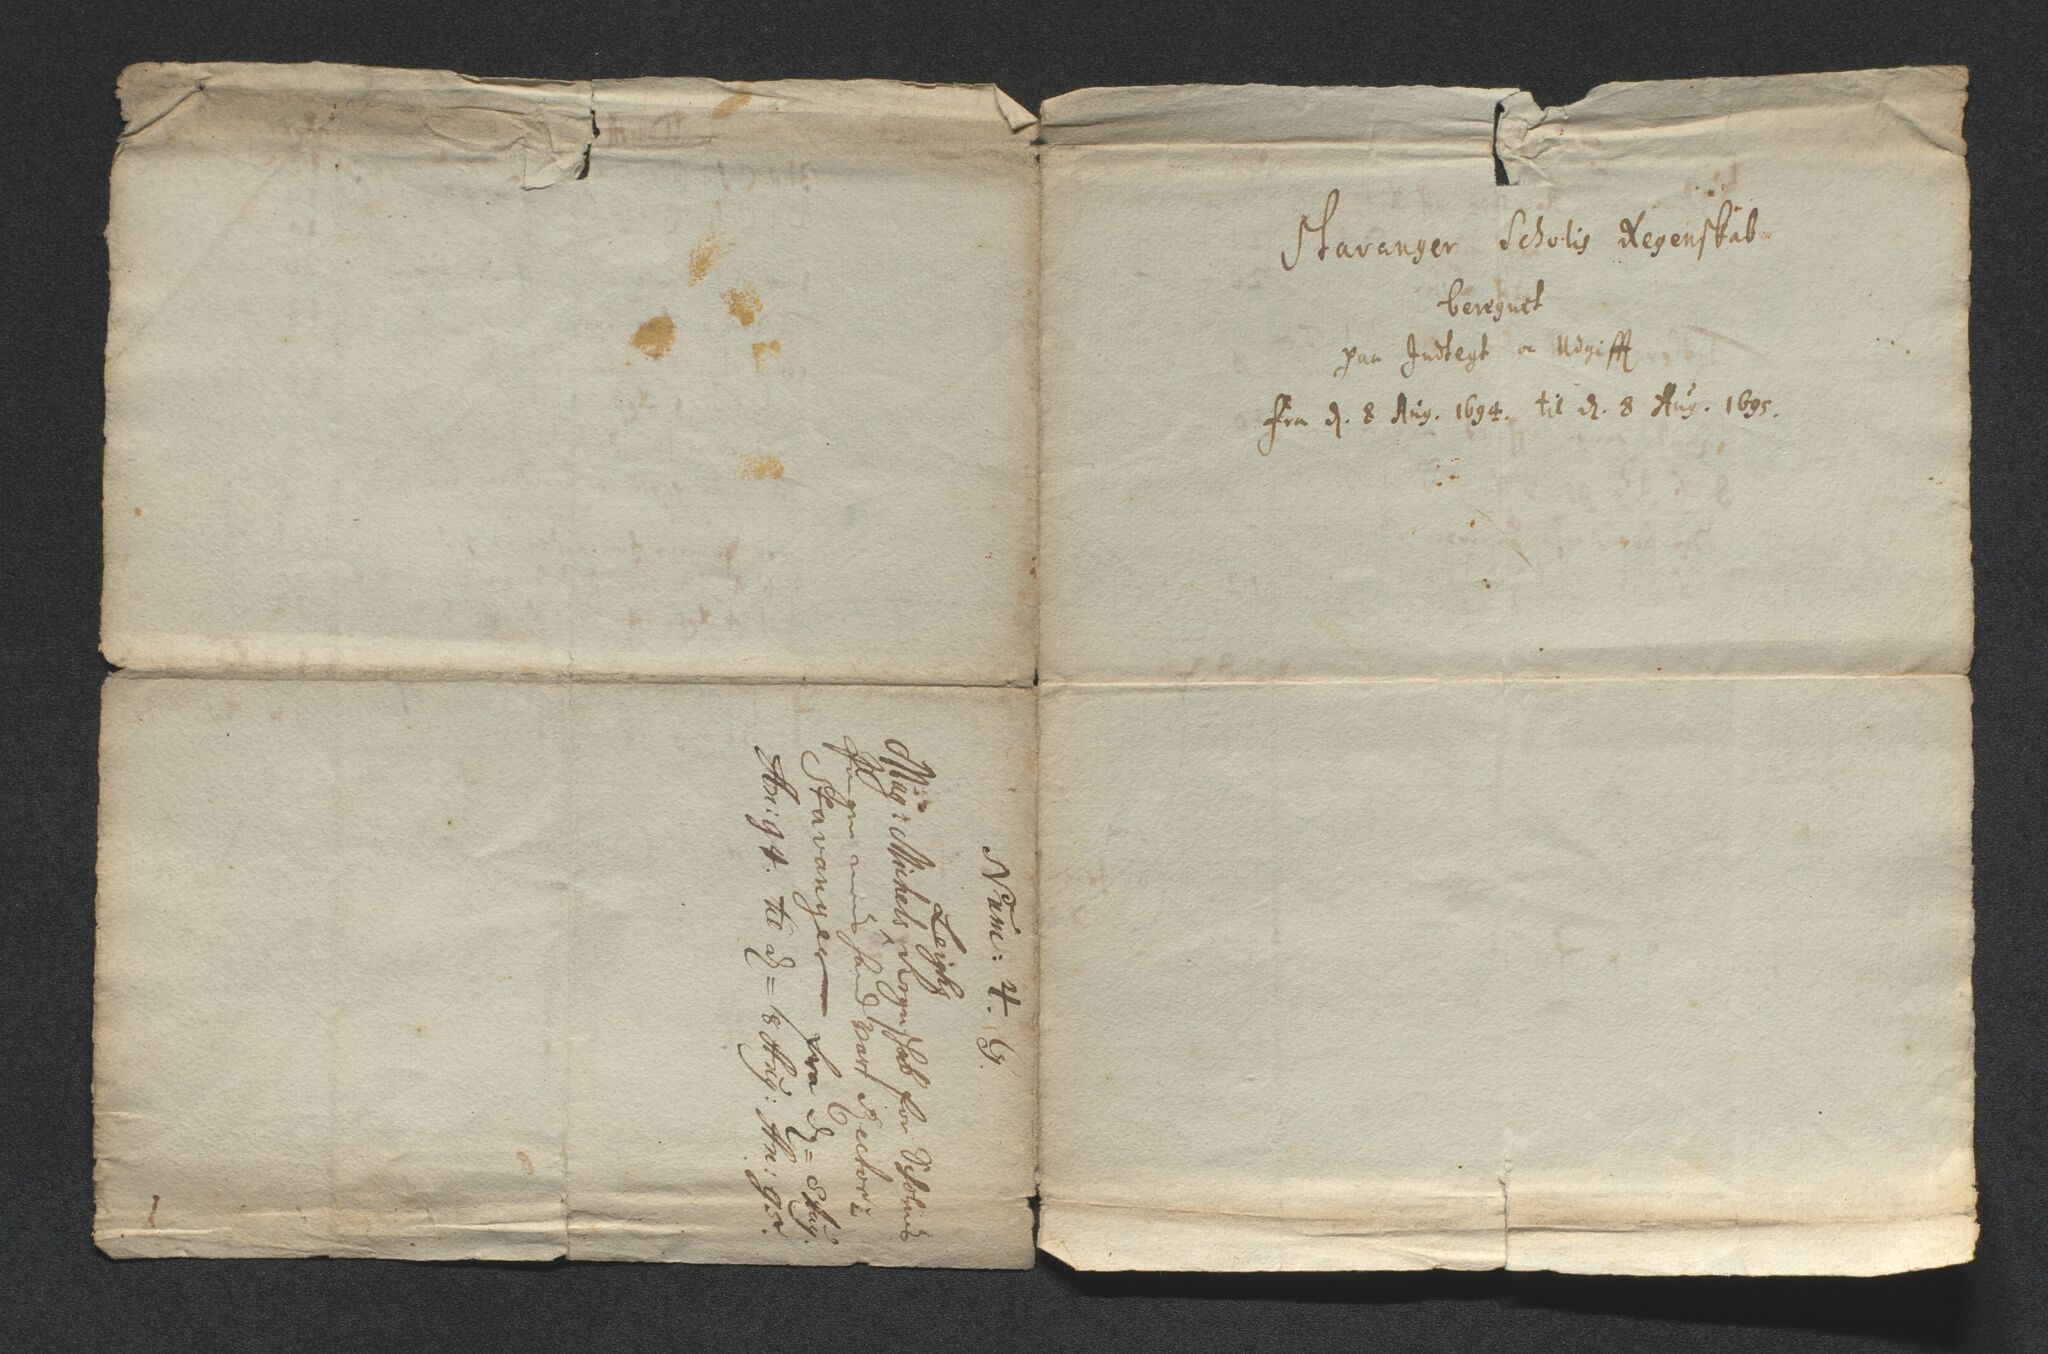 Stavanger Scholis Regenskab
beregnet
paa Indtegt oc Udgifft
fra d. 8 Aug. 1694. til d. 8 Aug. 1695.
Num: 4. G.
Leighs
Mag: Michels Regenskab for Scholens
hand vart Rector i
Stavanger fra d= 8 Aug.
An: 94. til d= 8 Aug: An: 95.